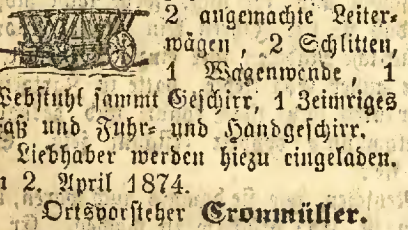 2 angemachte Leiter-
wägen, 2 Schlitten,
1 Wagenwende, 1
Webstuhl sammt Geschirr, 1 3eimriges
Faß und Fuhr- und Handgeschirr.
Liebhaber werden hiezu eingeladen.
2. April 1874.
Ortsvorsteher Cronmüller.